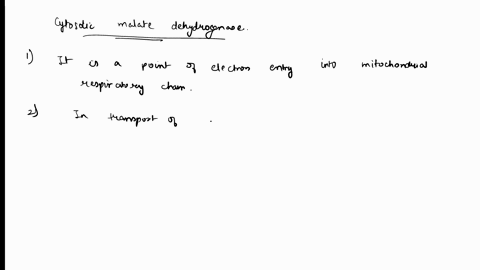 Cytosolic malate dehydrogenase.
1) It is a point of electron entry into mitochondrial
respiratory chain.
2) In transport of